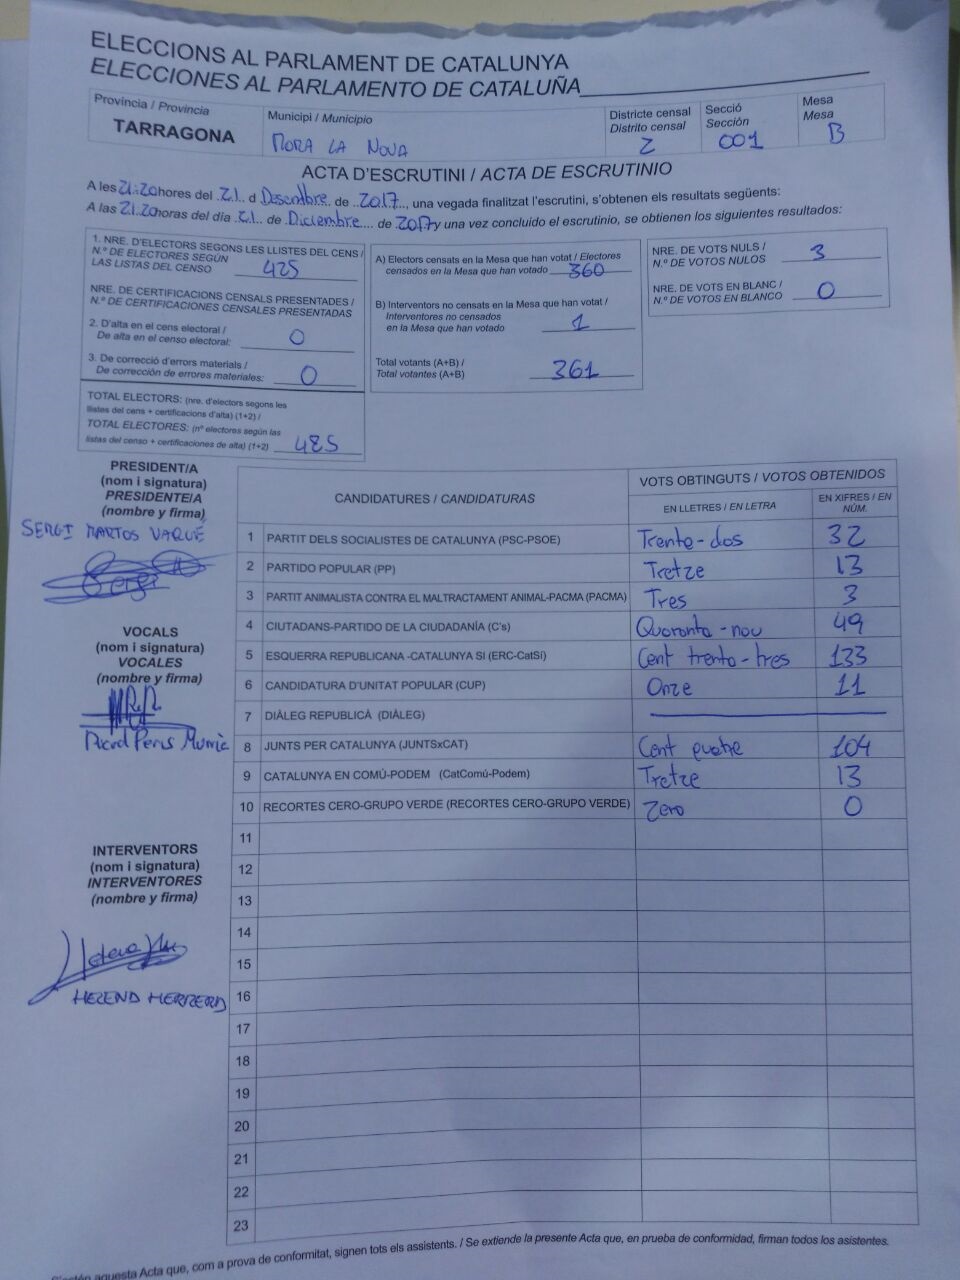 ELECCIONS AL PARLAMENT DE CATALUNYA
ELECCIONES AL PARLAMENTO DE CATALUÑA
Provincia / Provincia
TARRAGONA
Municipi / Municipio
MORA LA NOVA
Districte censal
Distrito censal
2
Secció
Sección
001
Mesa
Mesa
B
ACTA D'ESCRUTINI / ACTA DE ESCRUTINIO
A les 21:20 hores del 21 d Desembre de 2017, una vegada finalitzat l'escrutini, s'obtenen els resultats següents:
A las 21.20 horas del día 21 de Diciembre de 2017 y una vez concluido el escrutinio, se obtienen los siguientes resultados:
1. NRE. D'ELECTORS SEGONS LES LLISTES DEL CENS /
N.º DE ELECTORES SEGÚN
LAS LISTAS DEL CENSO 425
NRE. DE CERTIFICACIONS CENSALS PRESENTADES /
N.º DE CERTIFICACIONES CENSALES PRESENTADAS
2. D'alta en el cens electoral /
De alta en el censo electoral: 0
3. De correcció d'errors materials /
De corrección de errores materiales: 0
TOTAL ELECTORS: (nre. d'electors segons les
llistes del cens + certificacions d'alta) (1+2) /
TOTAL ELECTORES: (nº electores según las
listas del censo + certificaciones de alta) (1+2) 485
A) Electors censats en la Mesa que han votat / Electores
censados en la Mesa que han votado 360
B) Interventors no censats en la Mesa que han votat /
Interventores no censados
en la Mesa que han votado 1
Total votants (A+B) /
Total votantes (A+B) 361
NRE. DE VOTS NULS /
N.º DE VOTOS NULOS 3
NRE. DE VOTS EN BLANC /
N.º DE VOTOS EN BLANCO 0
PRESIDENT/A
(nom i signatura)
PRESIDENTE/A
(nombre y firma)
SERGI MARTOS VAQUÉ
Sergi
VOCALS
(nom i signatura)
VOCALES
(nombre y firma)
INTERVENTORS
(nom i signatura)
INTERVENTORES
(nombre y firma)
Helena
HELENA HERRERA
CANDIDATURES / CANDIDATURAS
VOTS OBTINGUTS / VOTOS OBTENIDOS
EN LLETRES / EN LETRA
EN XIFRES / EN
NÚM.
1 PARTIT DELS SOCIALISTES DE CATALUNYA (PSC-PSOE) Trenta-dos 32
2 PARTIDO POPULAR (PP) Tretze 13
3 PARTIT ANIMALISTA CONTRA EL MALTRACTAMENT ANIMAL-PACMA (PACMA) Tres 3
4 CIUTADANS-PARTIDO DE LA CIUDADANÍA (C's) Quaranta-nou 49
5 ESQUERRA REPUBLICANA -CATALUNYA SI (ERC-CatSí) Cent trenta-tres 133
6 CANDIDATURA D'UNITAT POPULAR (CUP) Onze 11
7 DIÀLEG REPUBLICÀ (DIÀLEG)
8 JUNTS PER CATALUNYA (JUNTSxCAT) Cent quatre 104
9 CATALUNYA EN COMÚ-PODEM (CatComú-Podem) Tretze 13
10 RECORTES CERO-GRUPO VERDE (RECORTES CERO-GRUPO VERDE) Zero 0
11
12
13
14
15
16
17
18
19
20
21
22
23
aquesta Acta que, com a prova de conformitat, signen tots els assistents. / Se extiende la presente Acta que, en prueba de conformidad, firman todos los asistentes.